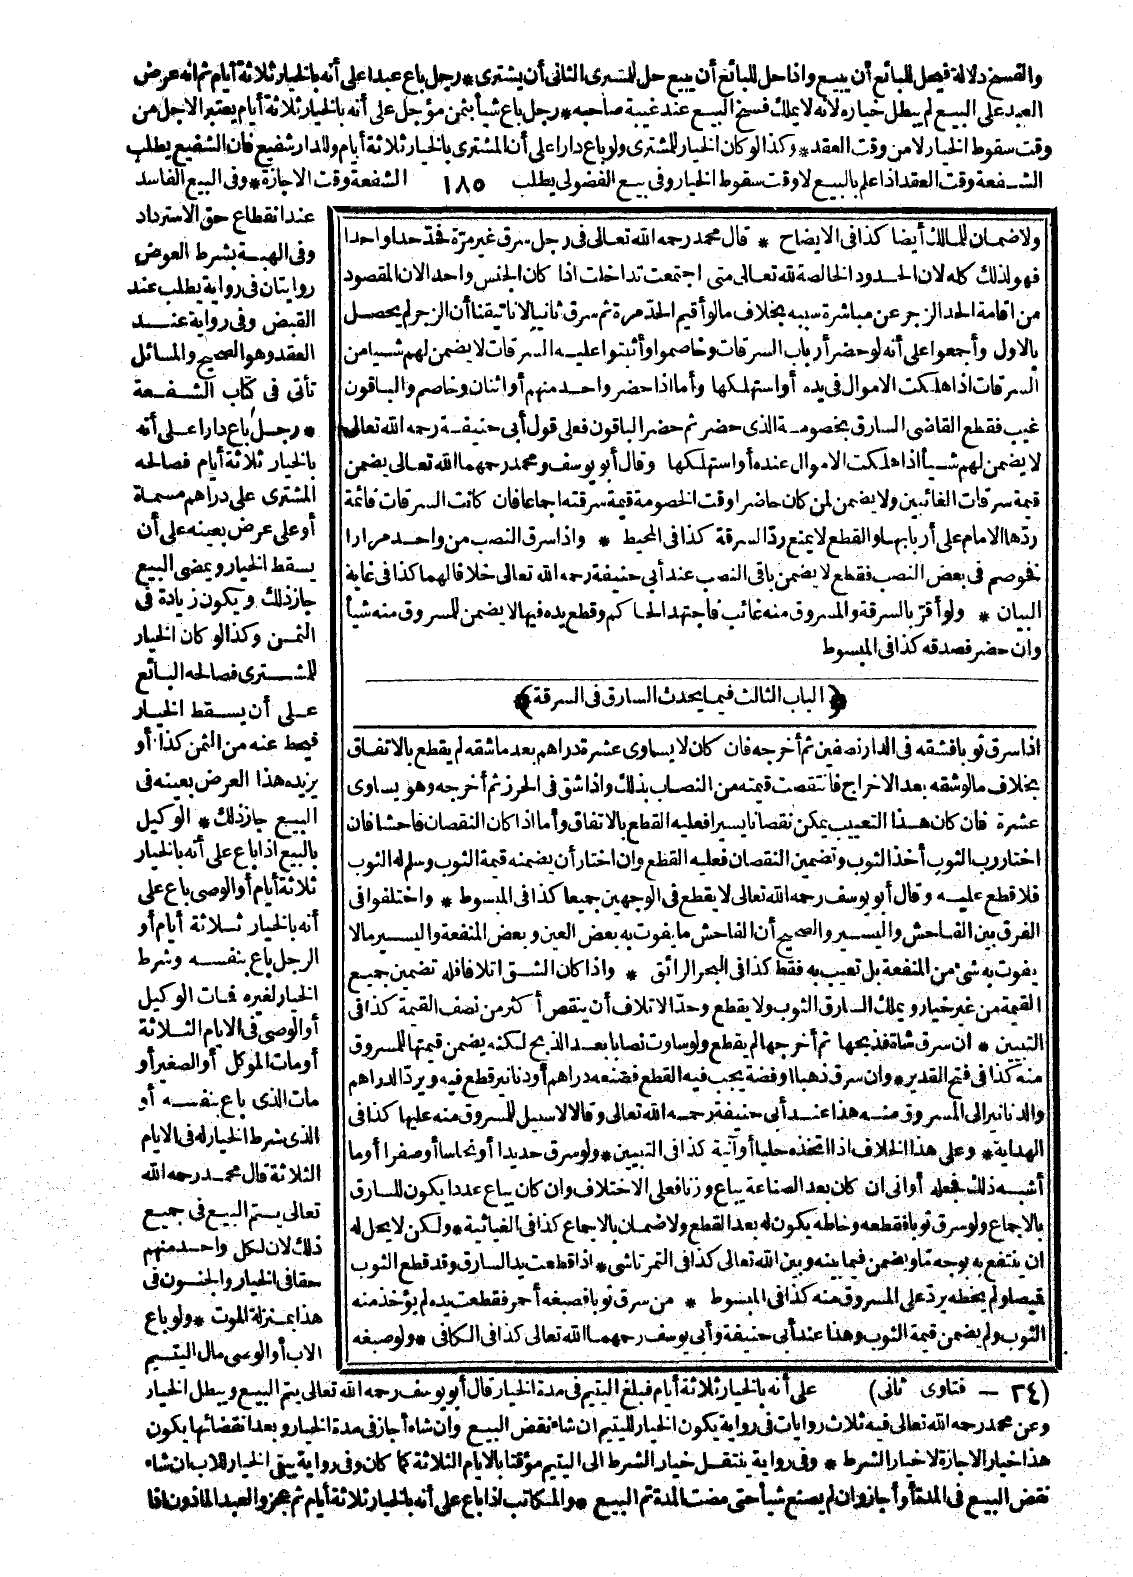 والفسخ دلالة فيحل للبائع أن يبيع واذا حل للبائع أن يبيع حل للمشترى الثانى أن يشترى * رجل باع عبدا على أنه بالخيار ثلاثة أيام ثم انه عرض
العبد على البيع لم يبطل خياره لانه لا يملك فسخ البيع عند غيبة صاحبه * رجل باع شيأ بثمن مؤجل على أنه بالخيار ثلاثة أيام يعتبر الاجل من
وقت سقوط الخيار لا من وقت العقد * وكذا لو كان الخيار للمشترى ولو باع دارا على أن المشترى بالخيار ثلاثة أيام وللدار شفيع فان الشفيع يطلب
الشفعة وقت العقد اذا علم بالبيع لا وقت سقوط الخيار وفى بيع الفضولى يطلب ١٨٥ الشفعة وقت الاجازة * وفى البيع الفاسد
عند انقطاع حق الاسترداد
وفى الهبة بشرط العوض
روايتان فى رواية يطلب عند
القبض وفى رواية عند
العقد وهو الصحيح والمسائل
تأتى فى كتاب الشفعة
* رجل باع دارا على أنه
بالخيار ثلاثة أيام فصالحه
المشترى على دراهم مسماة
أو على عرض بعينه على أن
يسقط الخيار ويمضى البيع
جاز ذلك ويكون زيادة فى
الثمن وكذا لو كان الخيار
للمشترى فصالحه البائع
على أن يسقط الخيار
فيحط عنه من الثمن كذا أو
يزيده هذا العرض بعينه فى
البيع جاز ذلك * الوكيل
بالبيع اذا باع على أنه بالخيار
ثلاثة أيام أو الوصى باع على
أنه بالخيار ثلاثة أيام أو
الرجل باع بنفسه وشرط
الخيار لغيره فمات الوكيل
أو الوصى فى الايام الثلاثة
أو مات الموكل أو الصغير أو
مات الذى باع بنفسه أو
الذى شرط الخيار له فى الايام
الثلاثة قال محمد رحمه الله
تعالى يتم البيع فى جميع
ذلك لان لكل واحد منهم
حقا فى الخيار والجنون فى
هذا بمنزلة الموت * ولو باع
الاب أو الوصى مال اليتيم
ولا ضمان للمالك أيضا كذا فى الايضاح * قال محمد رحمه الله تعالى فى رجل سرق غير مرة فحد حدا واحدا
فهو لذلك كله لان الحدود الخالصة لله تعالى متى اجتمعت تداخلت اذا كان الجنس واحدا لان المقصود
من اقامة الحد الزجر عن مباشرة سببه بخلاف ما لو أقيم الحد مرة ثم سرق ثانيا لانا تيقنا أن الزجر لم يحصل
بالاول وأجمعوا على أنه لو حضر أرباب السرقات وخاصموا وأثبتوا عليه السرقات لا يضمن لهم شيأ من
السرقات اذا هلكت الاموال فى يده أو استهلكها وأما اذا حضر واحد منهم أو اثنان وخاصم والباقون
غيب فقطع القاضى السارق بخصومة الذى حضر ثم حضر الباقون فعلى قول أبى حنيفة رحمه الله تعالى
لا يضمن لهم شيأ اذا هلكت الاموال عنده أو استهلكها وقال أبو يوسف ومحمد رحمهما الله تعالى يضمن
قيمة سرقات الغائبين ولا يضمن لمن كان حاضرا وقت الخصومة قيمة سرقته اجماعا فان كانت السرقات قائمة
ردها الامام على أربابها والقطع لا يمنع رد السرقة كذا فى المحيط * واذا سرق النصب من واحد مرارا
فخوصم فى بعض النصب فقطع لا يضمن باقى النصب عند أبى حنيفة رحمه الله تعالى خلافا لهما كذا فى غاية
البيان * ولو أقر بالسرقة والمسروق منه غائب فاجتهد الحاكم وقطع يده فيها لا يضمن للمسروق منه شيأ
وان حضر فصدقه كذا فى المبسوط
﴿ الباب الثالث فيما يحدث السارق فى السرقة ﴾
اذا سرق ثوبا فشقه فى الدار نصفين ثم أخرجه فان كان لا يساوى عشرة دراهم بعد ما شقه لم يقطع بالاتفاق
بخلاف ما لو شقه بعد الاخراج فانتقصت قيمته من النصاب بذلك واذا شق فى الحرز ثم أخرجه وهو يساوى
عشرة فان كان هذا التعييب يمكن نقصانا يسيرا فعليه القطع بالاتفاق وأما اذا كان النقصان فاحشا فان
اختار رب الثوب أخذ الثوب وتضمين النقصان فعليه القطع وان اختار أن يضمنه قيمة الثوب وسلم له الثوب
فلا قطع عليه وقال أبو يوسف رحمه الله تعالى لا يقطع فى الوجهين جميعا كذا فى المبسوط * واختلفوا فى
الفرق بين الفاحش واليسير والصحيح أن الفاحش ما يفوت به بعض العين وبعض المنفعة واليسير ما لا
يفوت به شئ من المنفعة بل تعيب به فقط كذا فى البحر الرائق * واذا كان الشق اتلافا فله تضمين جميع
القيمة من غير خيار ويملك السارق الثوب ولا يقطع وحد الاتلاف أن ينقص أكثر من نصف القيمة كذا فى
التبيين * ان سرق شاة فذبحها ثم أخرجها لم يقطع ولو ساوت نصابا بعد الذبح لكنه يضمن قيمتها للمسروق
منه كذا فى فتح القدير * وان سرق ذهبا أو فضة يجب فيه القطع فصنعه دراهم أو دنانير قطع فيه ويرد الدراهم
والدنانير الى المسروق منه هذا عند أبى حنيفة رحمه الله تعالى وقالا لا سبيل للمسروق منه عليها كذا فى
الهداية * وعلى هذا الخلاف اذا اتخذه حليا أو آنية كذا فى التبيين * ولو سرق حديدا أو نحاسا أو صفرا أو ما
أشبه ذلك فجعله أوانى ان كان بعد الصناعة يباع وزنا فعلى الاختلاف وان كان يباع عددا يكون للسارق
بالاجماع ولو سرق ثوبا فقطعه وخاطه يكون له بعد القطع ولا ضمان بالاجماع كذا فى الغياثية * ولكن لا يحل له
ان ينتفع به بوجه ما ويضمن فيما بينه وبين الله تعالى كذا فى التمرتاشى * اذا قطعت يد السارق وقد قطع الثوب
قميصا ولم يخطه يرد على المسروق منه كذا فى المبسوط * من سرق ثوبا فصبغه أحمر فقطعت يده لم يؤخذ منه
الثوب ولم يضمن قيمة الثوب وهذا عند أبى حنيفة وأبى يوسف رحمهما الله تعالى كذا فى الكافى * ولو صبغه
(٢٤ - فتاوى ثانى) على أنه بالخيار ثلاثة أيام فبلغ اليتيم فى مدة الخيار قال أبو يوسف رحمه الله تعالى يتم البيع ويبطل الخيار
وعن محمد رحمه الله تعالى فيه ثلاث روايات فى رواية يكون الخيار لليتيم ان شاء نقض البيع وان شاء أجاز فى مدة الخيار وبعد انقضائها يكون
هذا خيار الاجازة لا خيار الشرط * وفى رواية ينتقل خيار الشرط الى اليتيم مؤقتا بالايام الثلاثة كما كان وفى رواية يبقى الخيار للاب ان شاء
نقض البيع فى المدة أو أجاز وان لم يصنع شيأ حتى مضت المدة تم البيع * والمكاتب اذا باع على أنه بالخيار ثلاثة أيام ثم عجز والعبد المأذون اذا